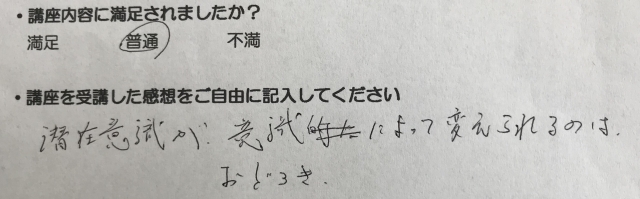 ・講座内容に満足されましたか？
満足 普通 不満
・講座を受講した感想をご自由に記入してください
潜在意識が、意識的たによって変えられるのは、
おどろき.